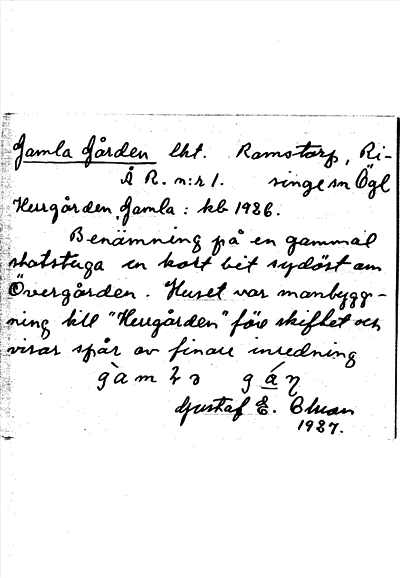 Gamla Gården lht. Ramstorp, Ri-
Å R. n:r 1. singe sn Ögl
Herrgården, Gamla: hb 1926.
Benämning på en gammal
statstuga en kort bit sydöst om
Övergården. Huset var manbygg-
ning till "Herrgården" före skiftet och
visar spår av finare inredning
gàmɫə gáṇ
Gustaf E. Olsson
1927.